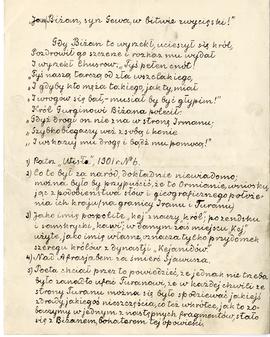 Jam Biżan, syn Gewa, w bitwie zwycięski!"
Gdy Biżan to wyrzekł, ucieszył się król,
Pozdrowił go szczerze i rozkaz mu wydał
I wyrzekł Chusrow: „Tyś pełen cnót!
„Tyś naszą tarczą od zła wszelakiego,
„I gdyby kto męża takiego, jak ty, miał
„I wrogów się bał, musiał by być głupim!"
Król Gurginowi Biżana polecił:
„Gdyż drogi on nie zna w stronę Irmanu;
„Szybkobiegacy weź z sobą i konie
„I wskazuj mu drogę i bądź mu pomocą!"
1) Patrz „Wisła", 1901 r. № 6.
2) Co to był za naród, dokładnie niewiadomo;
można było by przypuścić, że to Ormianie, wniosku-
jąc z podobieństwa słów i geograficznego położe-
nia ich kraju (na granicy Iranu i Turanu)
3) Jako imię pospolite „kej" znaczy król; po zendsku
i sanskrycku, kawi; w danym zaś miejscu „Kej"
użyte, jako imię własne, oznacza tylko przydomek
szeregu królów z dynastji „Kejanidów"
4) Nad Afrasjabem za śmierć Sjawusza.
5) Poeta chciał przez to powiedzieć, że jednak nie trzeba
było zanadto ufać Turanowi, że w każdej chwili ze
strony Turanu można się było spodziewać jakiejś
zdrady, jakiegoś nieszczęścia, co też wkrótce, jak to zo-
baczymy w jednym z następnych fragmentów, stało
się z Biżanem, bohaterem tej opowieści.